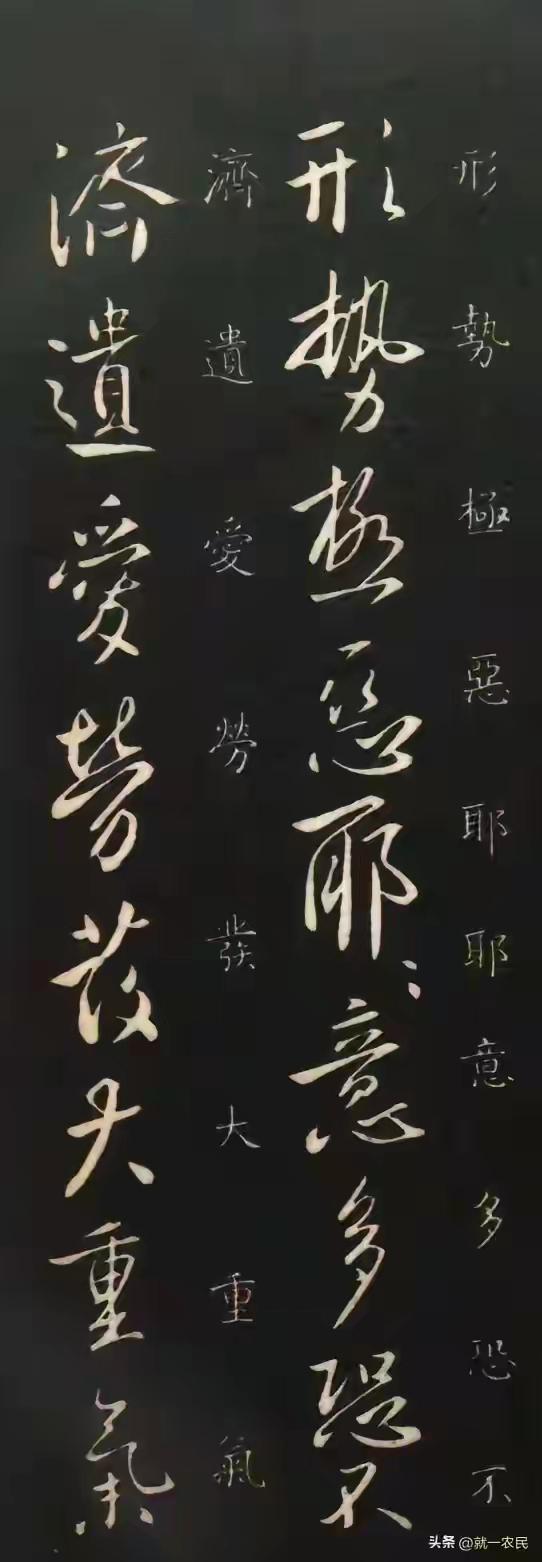 形勢極惡耶耶意多恐不
形勢極惡耶〻意多恐不
濟遺愛勞發大重氣
濟遺愛勞發大重氣
头条 @就一农民